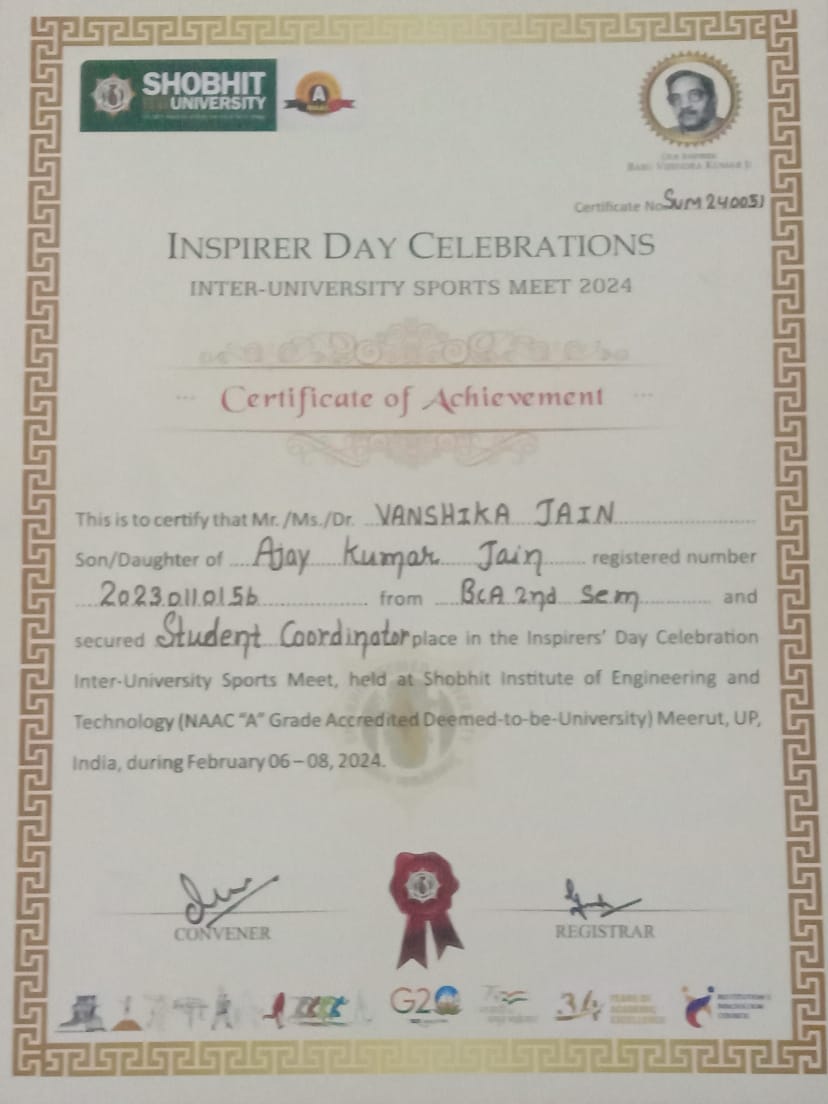 SHOBHIT
UNIVERSITY
A
OUR INSPIRER
BABU VIJENDRA KUMAR JI
Certificate No. SUM240051
INSPIRER DAY CELEBRATIONS
INTER-UNIVERSITY SPORTS MEET 2024
Certificate of Achievement
This is to certify that Mr./Ms./Dr. VANSHIKA JAIN
Son/Daughter of Ajay Kumar Jain registered number
20230110156 from BCA 2nd Sem and
secured Student Coordinator place in the Inspirers’ Day Celebration
Inter-University Sports Meet, held at Shobhit Institute of Engineering and
Technology (NAAC “A” Grade Accredited Deemed-to-be-University) Meerut, UP,
India, during February 06 – 08, 2024.
CONVENER
REGISTRAR
G20
34 YEARS OF
ACADEMIC
EXCELLENCE
INSTITUTION'S
INNOVATION
COUNCIL